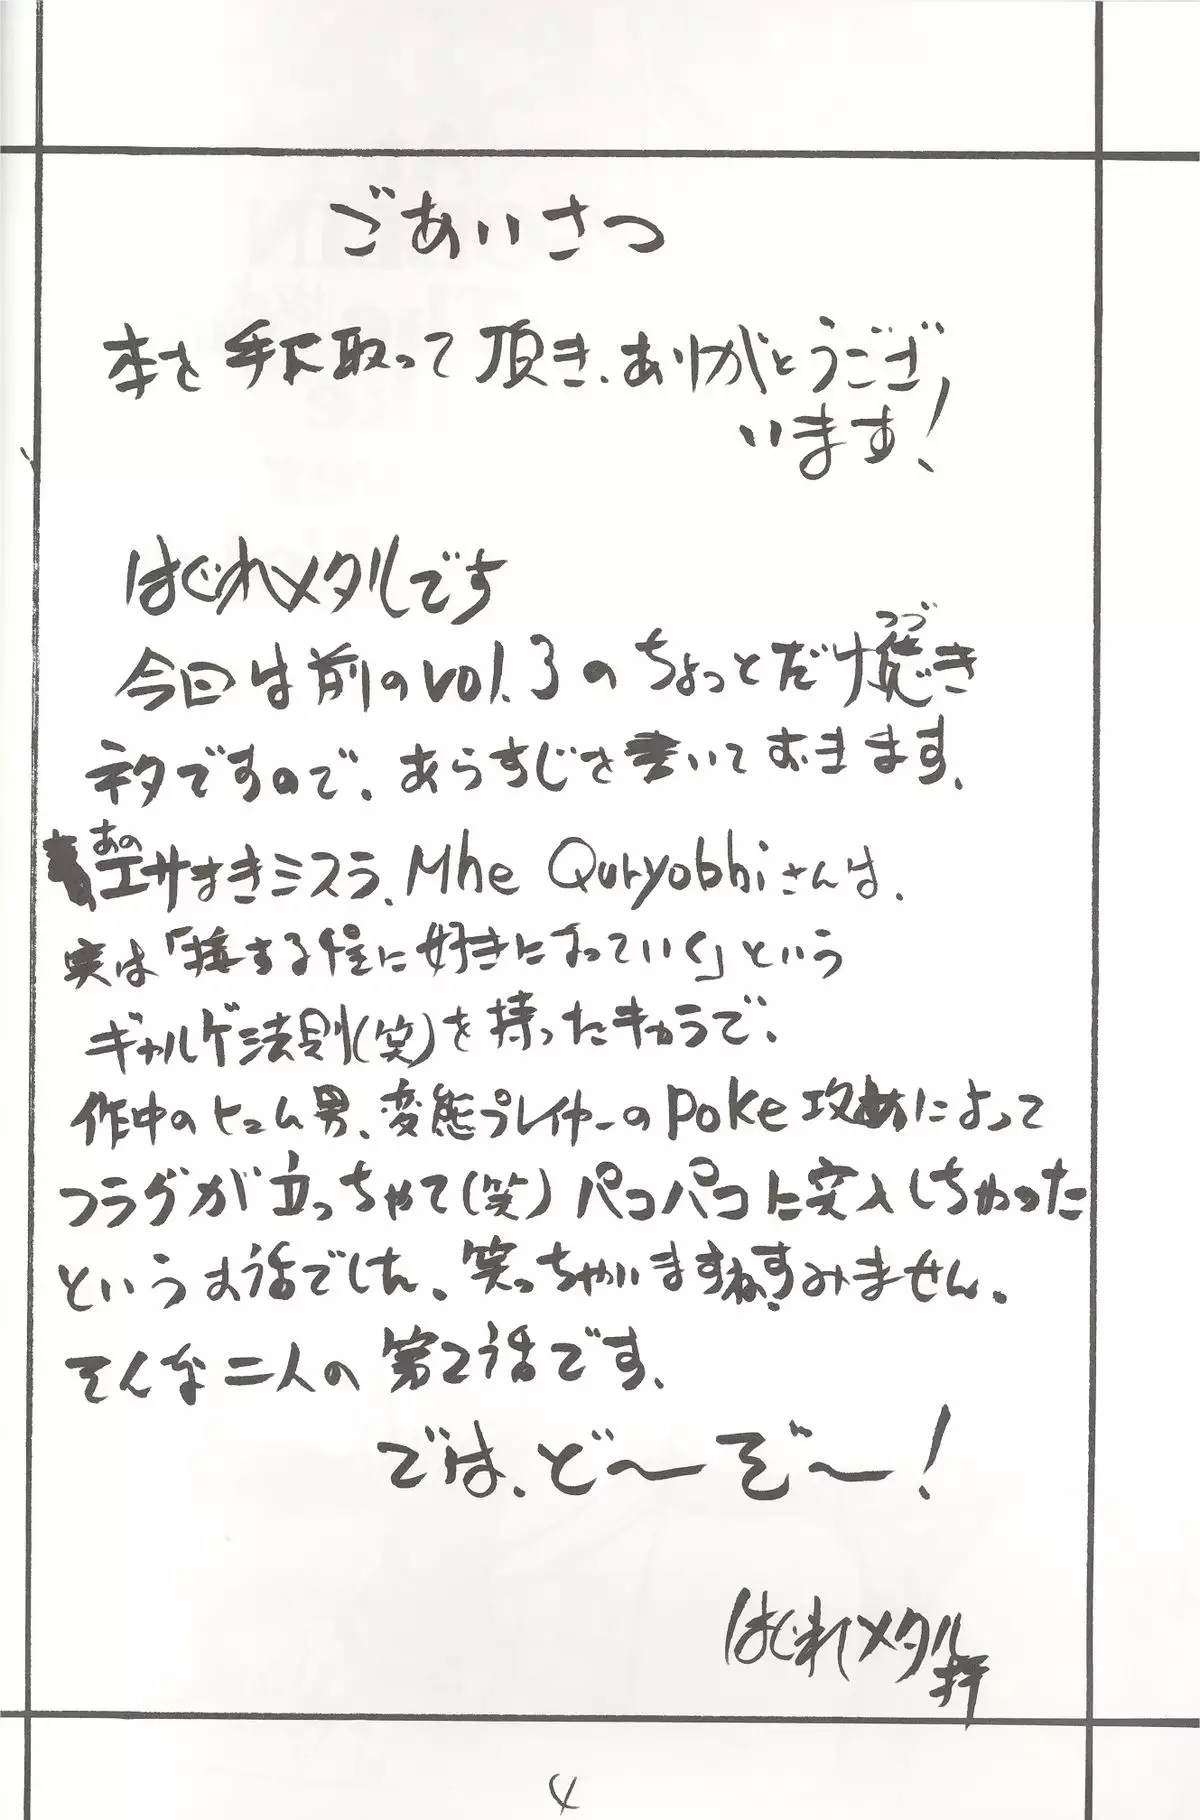 ごあいさつ
本を手に取って頂き、ありがとうござ
います!
はぐれメタルでち
つづ
今回は前のvol.3のちょっとだけ続き
ネタですので、あらすじを書いておきます。
あの
エサまきミスラ、Mhe Quryobhiさんは、
実は「接する程に好きになっていく」という
ギャルゲ法則(笑)を持ったキャラで、
作中のヒュム男、変態プレイヤーのpoke攻めによって
フラグが立っちゃて(笑)パコパコに突入しちゃった
というお話でした。笑っちゃいますね。すみません。
そんな二人の第2話です。
では、ど〜ぞ〜!
はぐれメタル
拝
4